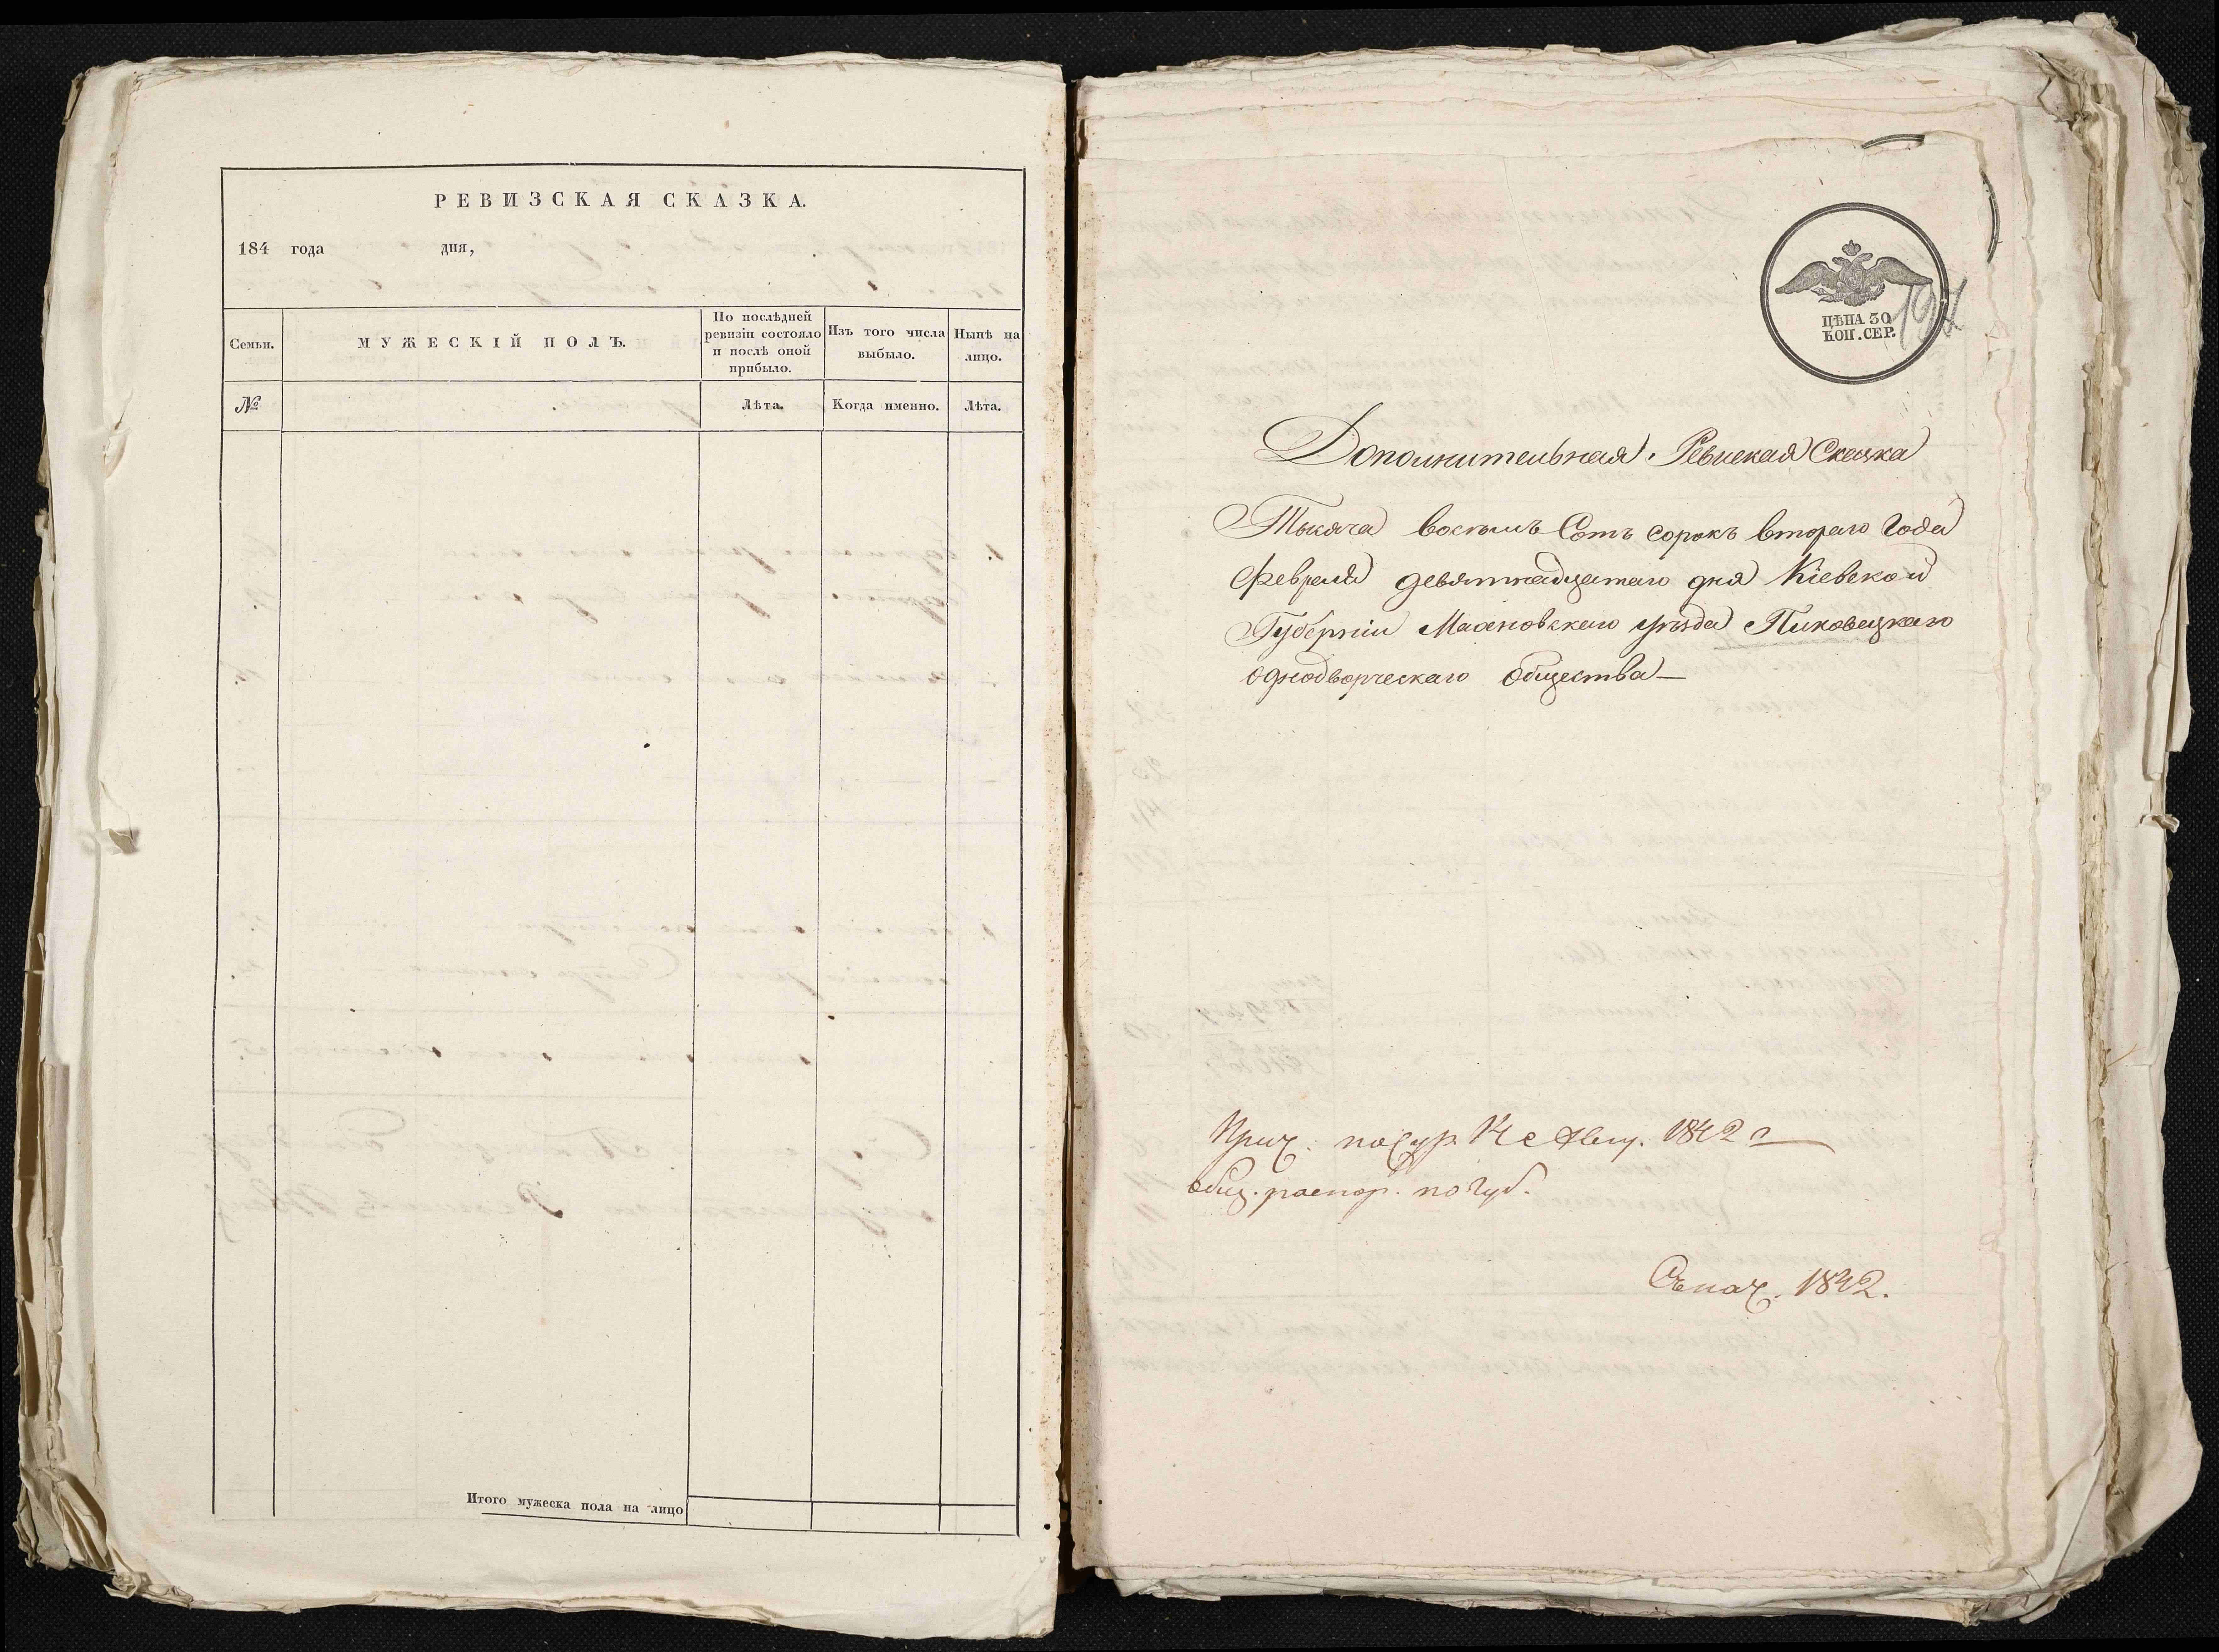 РЕВИЗСКАЯ СКАЗКА.
184 года дня,
Семьи.
МУЖЕСКІЙ ПОЛЪ.
По послѣдней ревизіи состояло и послѣ оной прибыло.
Изъ того числа выбыло.
Нынѣ на лицо.
№
Лѣта.
Когда именно.
Лѣта.
Итого мужеска пола на лицо
ЦѢНА 30
КОП. СЕР.
Дополнительная Ревиская Сказка
Тысяча восемь Сотъ сорокъ втораго Года
Февраля девятнадцатаго дня Кіевской
Губерніи Махновскаго уѣзда Пиковецкаго
однодворческаго общества
Прич. 1842 г
общ. распор. по губ.
Съ нач. 1842.